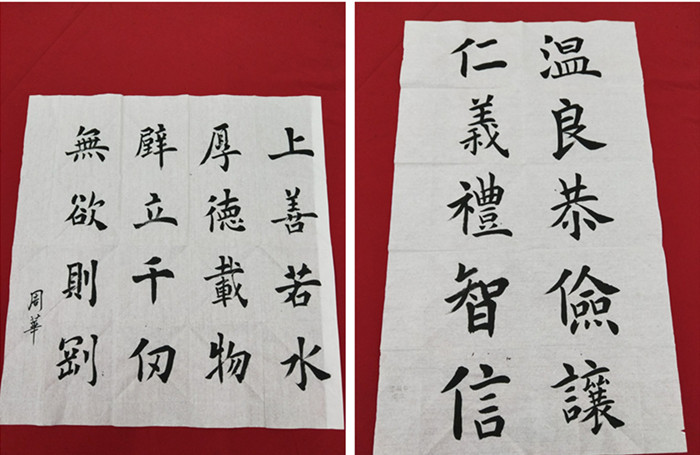 上善若水
厚德載物
壁立千仞
無欲則剛
周華
温良恭儉讓
仁義禮智信